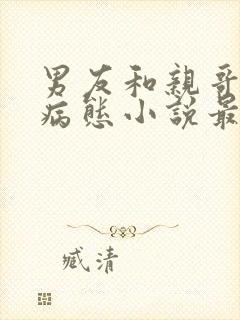 男友和親哥
病態小說最
臧清